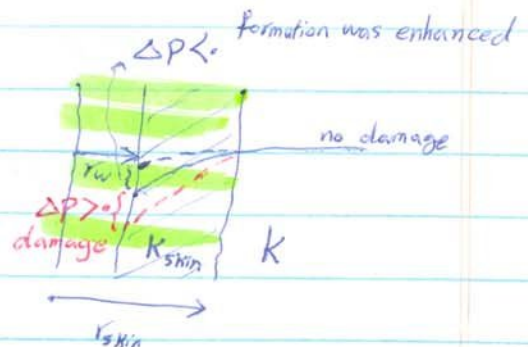 formation was enhanced
ΔP<.
no damage
rw
ΔP>.
damage
Kskin
K
rskin